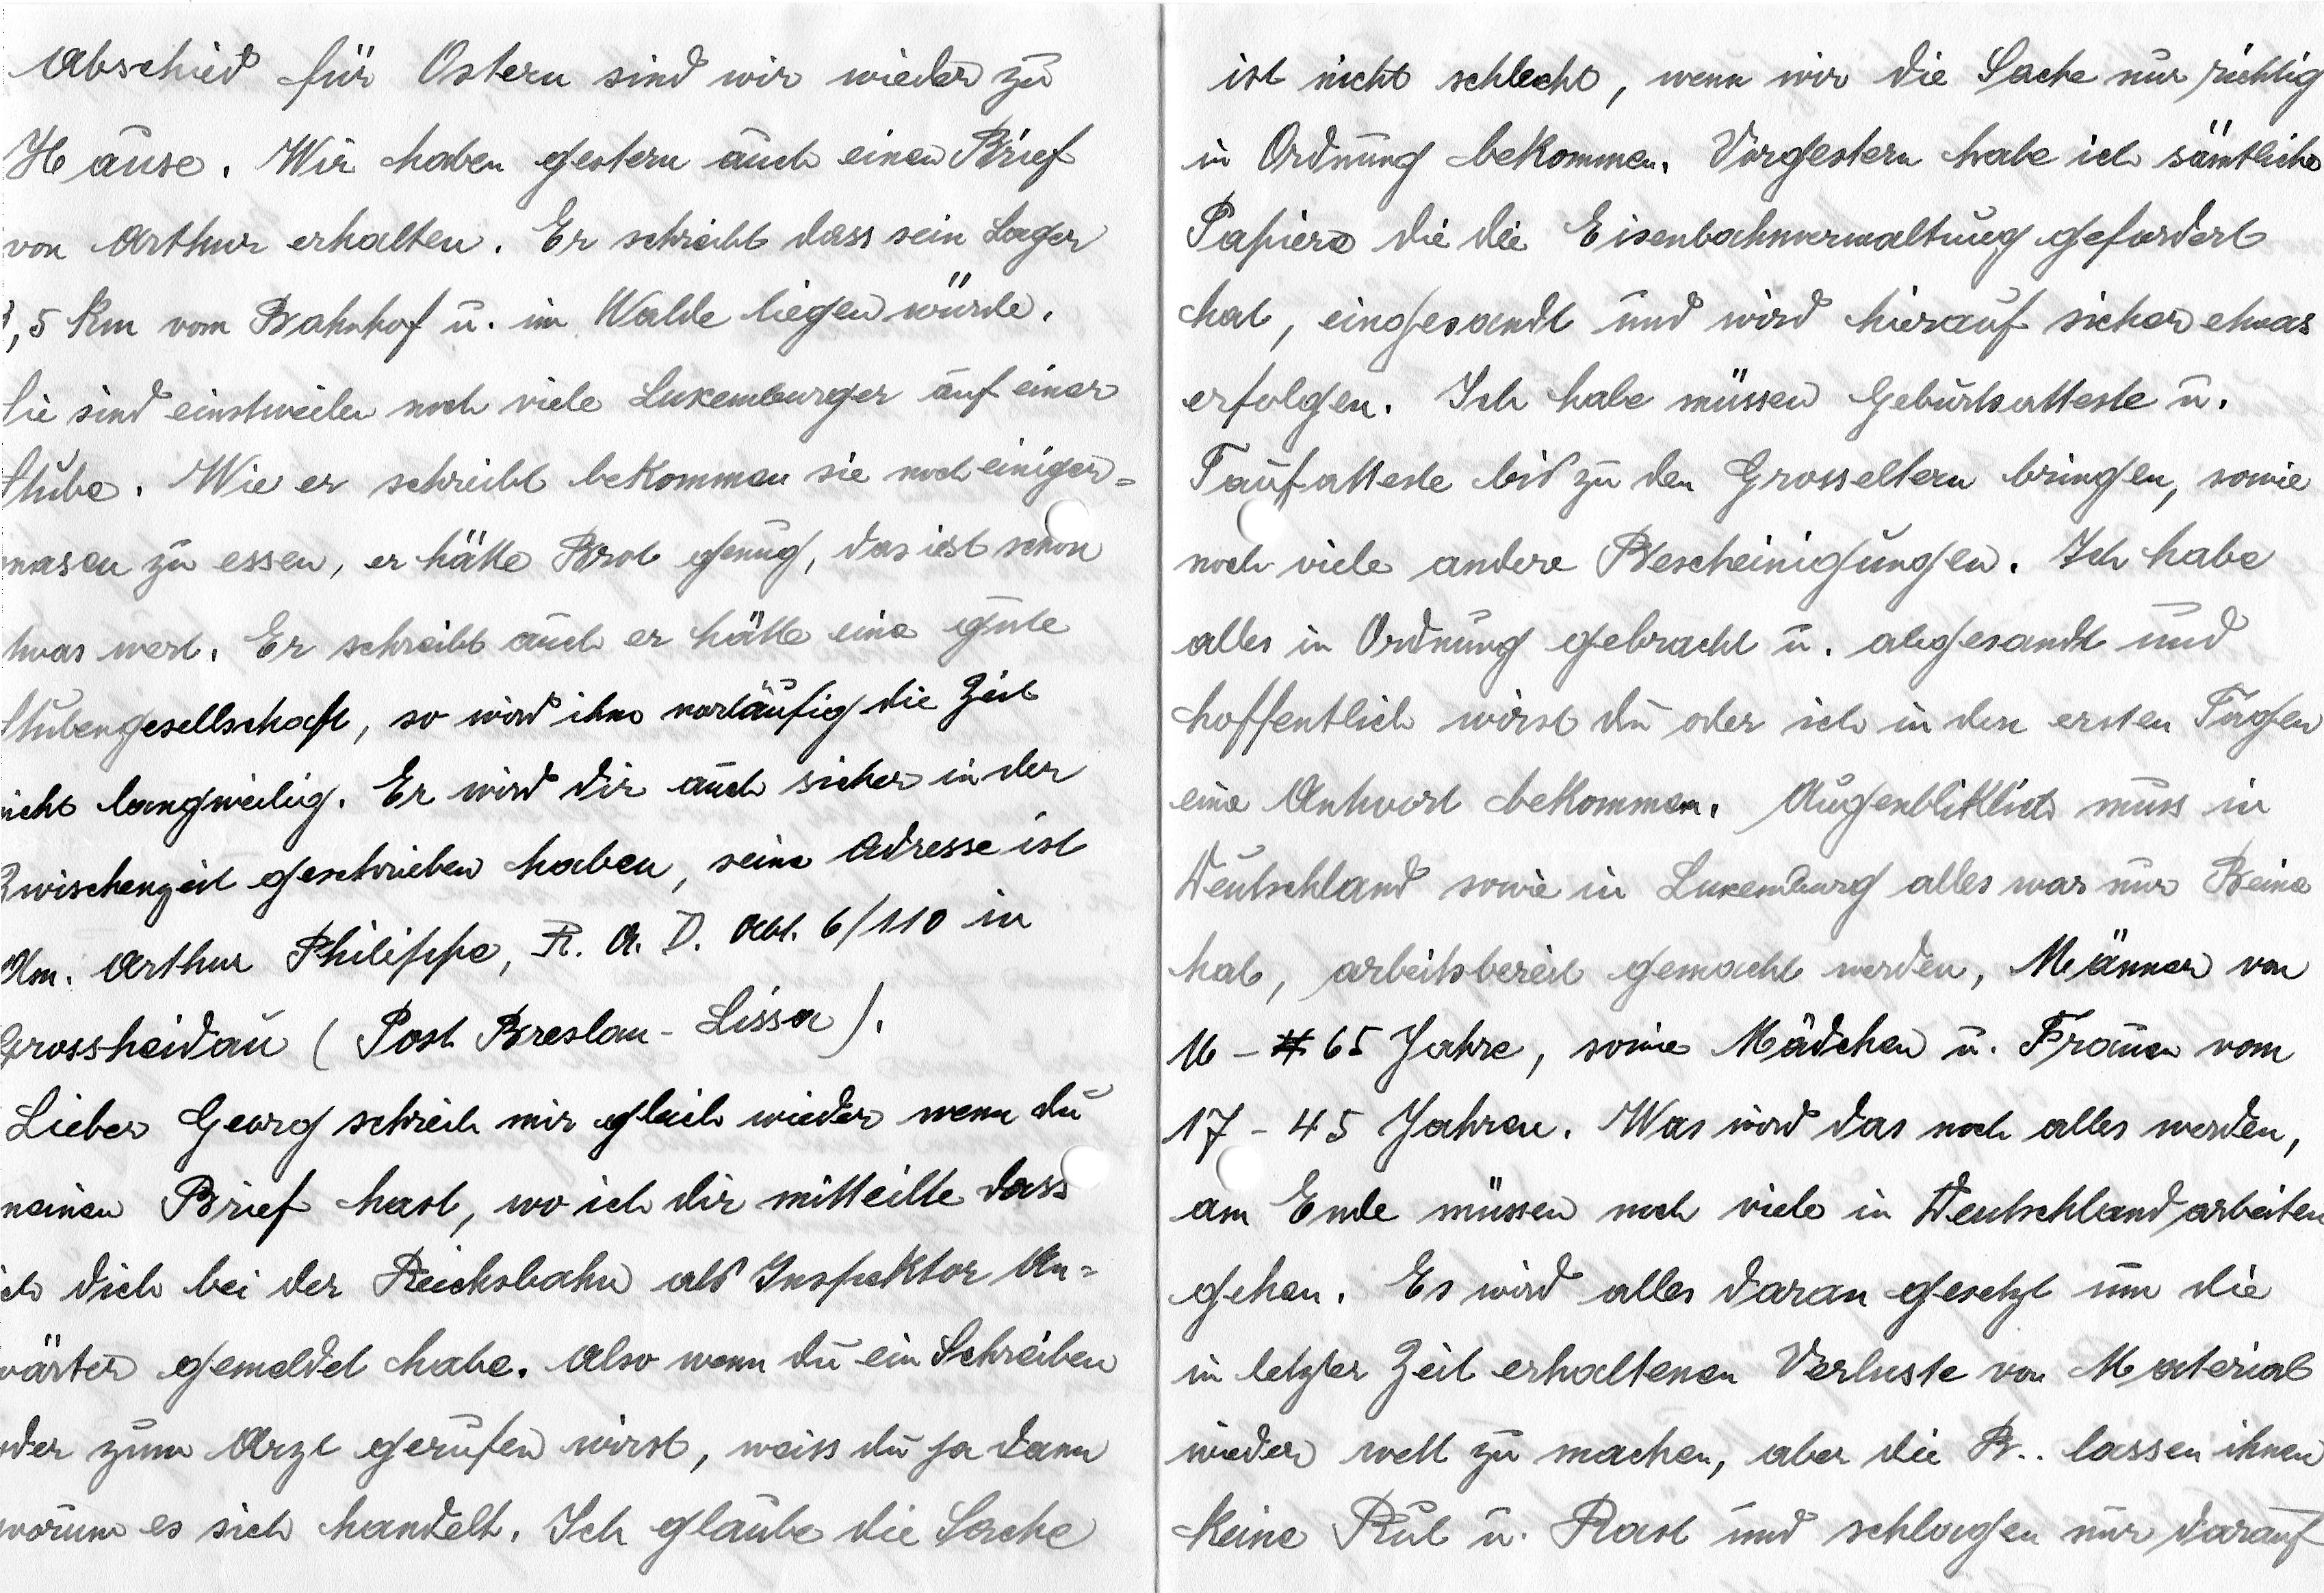 Abschied für Ostern sind wir wieder zu
Hause. Wir haben gestern auch einen Brief
von Arthur erhalten. Er schreibt dass sein Lager
,5 Km vom Bahnhof u. im Walde liegen würde.
Sie sind einstweilen noch viele Luxemburger auf einer
Stube. Wie er schreibt bekommen sie noch einiger=
masen zu essen, er hätte Brot genug, das ist schon
twas wert. Er schreibt auch er hätte eine gute
Stubengesellschaft, so wird ihm vorläufig die Zeit
nicht langweilig. Er wird dir auch sicher in der
Zwischenzeit geschrieben haben, seine Adresse ist
Arthur Philippe, R. A. D. Abt. 6/110 in
Grossheidau (Post Breslau-Lissa).
Lieber Georg schreib mir gleich wieder wenn du
meinen Brief hast, wo ich dir mitteilte dass
ich dich bei der Reichsbahn als Inspektor An=
wärter gemeldet habe. Also wenn du ein Schreiben
oder zum Arzt gerufen wirst, weiss du ja dann
worum es sich handelt. Ich glaube die Sache
ist nicht schlecht, wenn wir die Sache nur richtig
in Ordnung bekommen. Vorgestern habe ich sämtliche
Papiere die die Eisenbahnverwaltung gefordert
hat, eingesandt und wird hierauf sicher etwas
erfolgen. Ich habe müssen Geburtsatteste u.
Taufatteste bis zu den Grosseltern bringen, sowie
noch viele andere Bescheinigungen. Ich habe
alles in Ordnung gebracht u. abgesandt und
hoffentlich wirst du oder ich in den ersten Tagen
eine Antwort bekommen. Augenbliklich muss in
Deutschland sowie in Luxemburg alles was nur Beine
hat, arbeitsbereit gemacht werden, Männer von
16 - 65 Jahre, sowie Mädchen u. Frauen vom
17 - 45 Jahren. Was wird das noch alles werden,
am Ende müssen noch viele in Deutschland arbeiten
gehen. Es wird alles daran gesetzt um die
in letzter Zeit erhaltenen Verluste von Material
wieder wett zu machen, aber die R.. lassen ihnen
keine Ruh u. Rast und schlagen nur darauf